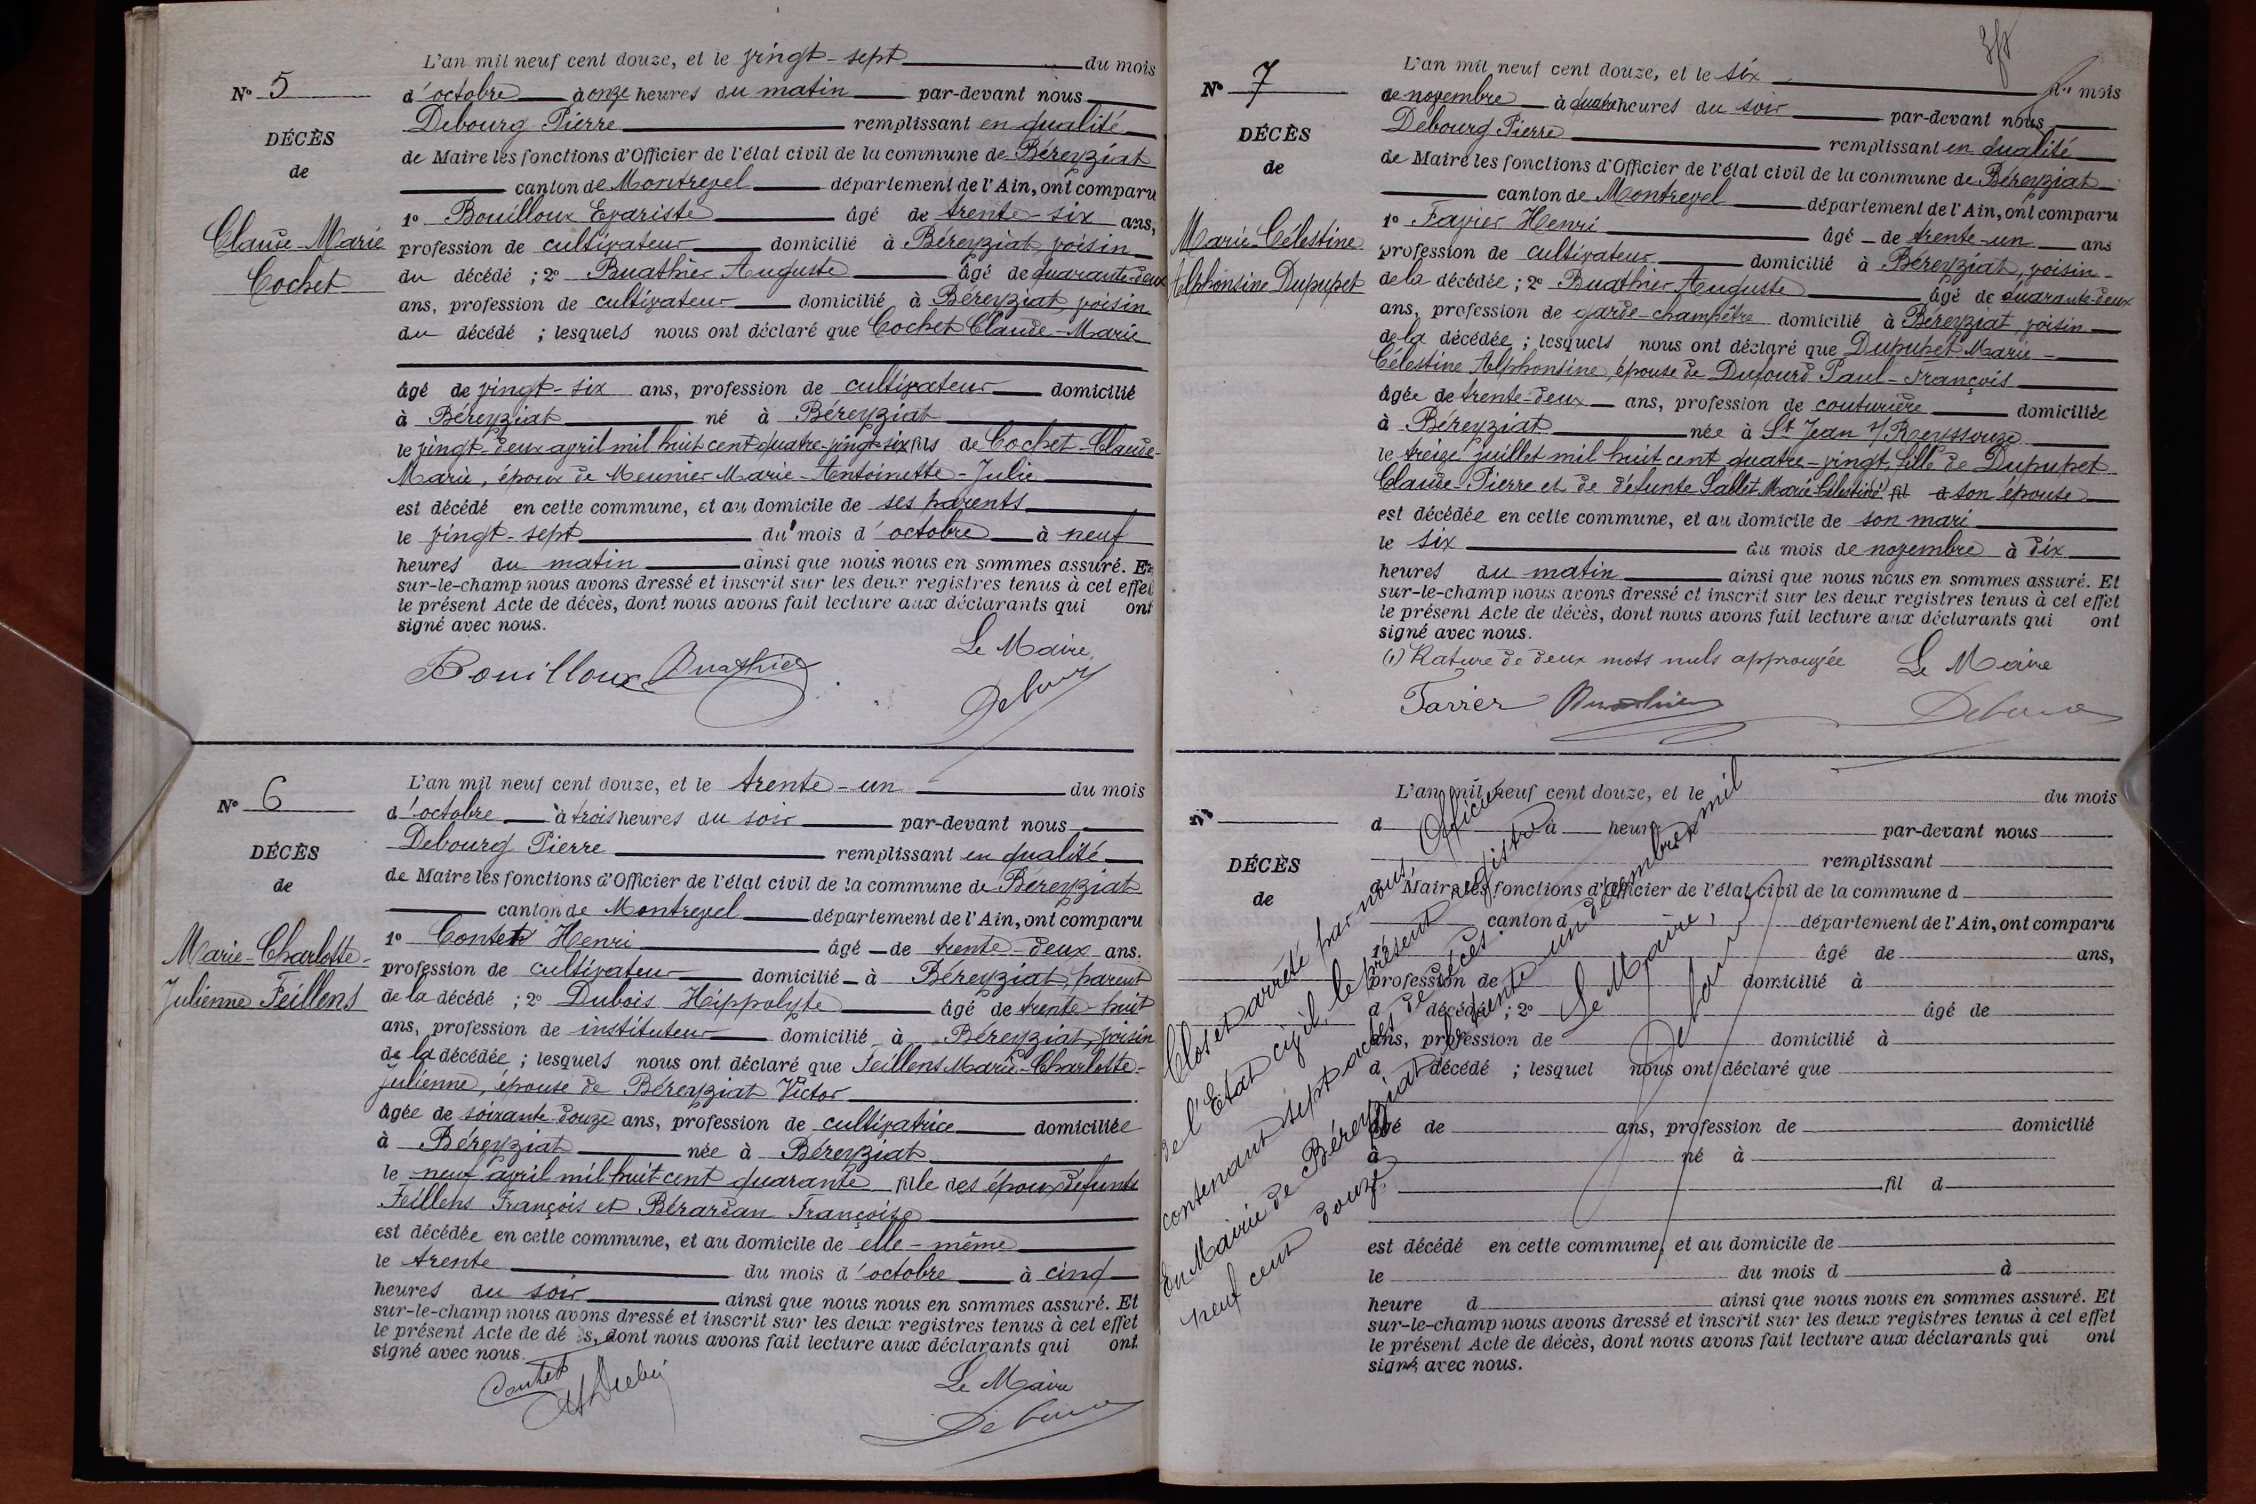 L'an mil neuf cent douze, et le vingt-sept du mois
N° 5
d'octobre à onze heures du matin par-devant nous
Debourg Pierre remplissant en qualité
DÉCÈS
de Maire les fonctions d'Officier de l'état civil de la commune de Béreyziat
de
canton de Montrevel département de l'Ain, ont comparu
1° Bouilloux Evariste âgé de trente-six ans,
Claude-Marie
profession de cultivateur domicilié à Béreyziat, voisin
Cochet
du décédé ; 2° Buathier Auguste âgé de quarante-deux
ans, profession de cultivateur domicilié à Béreyziat, voisin
du décédé ; lesquels nous ont déclaré que Cochet Claude-Marie
âgé de vingt-six ans, profession de cultivateur domicilié
à Béreyziat né à Béreyziat
le vingt-deux avril mil huit cent quatre-vingt-six fils de Cochet Claude-
Marie, époux de Meunier Marie-Antoinette-Julie
est décédé en cette commune, et au domicile de ses parents
le vingt-sept du mois d'octobre à neuf
heures du matin ainsi que nous nous en sommes assuré. Et
sur-le-champ nous avons dressé et inscrit sur les deux registres tenus à cet effet
le présent Acte de décès, dont nous avons fait lecture aux déclarants qui ont
signé avec nous.
Le Maire,
Bouilloux Buathier
Debourg
L'an mil neuf cent douze, et le trente-un du mois
N° 6
d'octobre à trois heures du soir par-devant nous
Debourg Pierre remplissant en qualité
DÉCÈS
de Maire les fonctions d'Officier de l'état civil de la commune de Béreyziat
de
canton de Montrevel département de l'Ain, ont comparu
1° Contet Henri âgé de trente-deux ans.
Marie-Charlotte-
profession de cultivateur domicilié à Béreyziat, parent
Julienne Feillens
de la décédé ; 2° Dubois Hippolyte âgé de trente-huit
ans, profession de instituteur domicilié à Béreyziat, voisin
de la décédée ; lesquels nous ont déclaré que Feillens Marie-Charlotte-
Julienne, épouse de Béreyziat Victor
âgée de soixante douze ans, profession de cultivatrice domiciliée
à Béreyziat née à Béreyziat
le neuf avril mil huit cent quarante fille des époux défunts
Feillens François et Bérardan Françoise
est décédée en cette commune, et au domicile de elle-même
le trente du mois d'octobre à cinq
heures du soir ainsi que nous nous en sommes assuré. Et
sur-le-champ nous avons dressé et inscrit sur les deux registres tenus à cet effet
le présent Acte de décès, dont nous avons fait lecture aux déclarants qui ont
signé avec nous.
Contet
Le Maire
Debourg
L'an mil neuf cent douze, et le six du mois
N° 7
de novembre à quatre heures du soir par-devant nous
Debourg Pierre remplissant en qualité
DÉCÈS
de Maire les fonctions d'Officier de l'état civil de la commune de Béreyziat
de
canton de Montrevel département de l'Ain, ont comparu
1° Favier Henri âgé de trente-un ans
Marie-Célestine
profession de cultivateur domicilié à Béreyziat, voisin
Alphonsine Dupupet
de la décédée ; 2° Buathier Auguste âgé de quarante-deux
ans, profession de garde-champêtre domicilié à Béreyziat, voisin
de la décédée ; lesquels nous ont déclaré que Dupupet Marie-
Célestine Alphonsine, épouse de Dufourd Paul-François
âgée de trente-deux ans, profession de couturière domiciliée
à Béreyziat née à St Jean s/ Reyssouze
le treize juillet mil huit cent quatre-vingt, fille de Dupupet
Claude-Pierre et de défunte Sallet Marie Célestine (1) fil d son épouse
est décédée en cette commune, et au domicile de son mari
le six du mois de novembre à dix
heures du matin ainsi que nous nous en sommes assuré. Et
sur-le-champ nous avons dressé et inscrit sur les deux registres tenus à cet effet
le présent Acte de décès, dont nous avons fait lecture aux déclarants qui ont
signé avec nous.
(1) Rature de deux mots nuls approuvée Le Maire
Favier Buathier Debourg
L'an mil neuf cent douze, et le du mois
N°
d à heure par-devant nous
remplissant
DÉCÈS
d Maire les fonctions d'Officier de l'état civil de la commune d
de
canton d département de l'Ain, ont comparu
1° âgé de ans,
profession de domicilié à
d décédé ; 2° âgé de
ans, profession de domicilié à
d décédé ; lesquel nous ont déclaré que
âgé de ans, profession de domicilié
à né à
le fil d
est décédé en cette commune, et au domicile de
le du mois d à
heure d ainsi que nous nous en sommes assuré. Et
sur-le-champ nous avons dressé et inscrit sur les deux registres tenus à cet effet
le présent Acte de décès, dont nous avons fait lecture aux déclarants qui ont
signé avec nous.
Clos et arrêté par nous Officier
de l'Etat civil, le présent registre
contenant sept actes de décès.
En Mairie de Béreyziat le trente un décembre mil
neuf cent douze
Le Maire,
Debourg